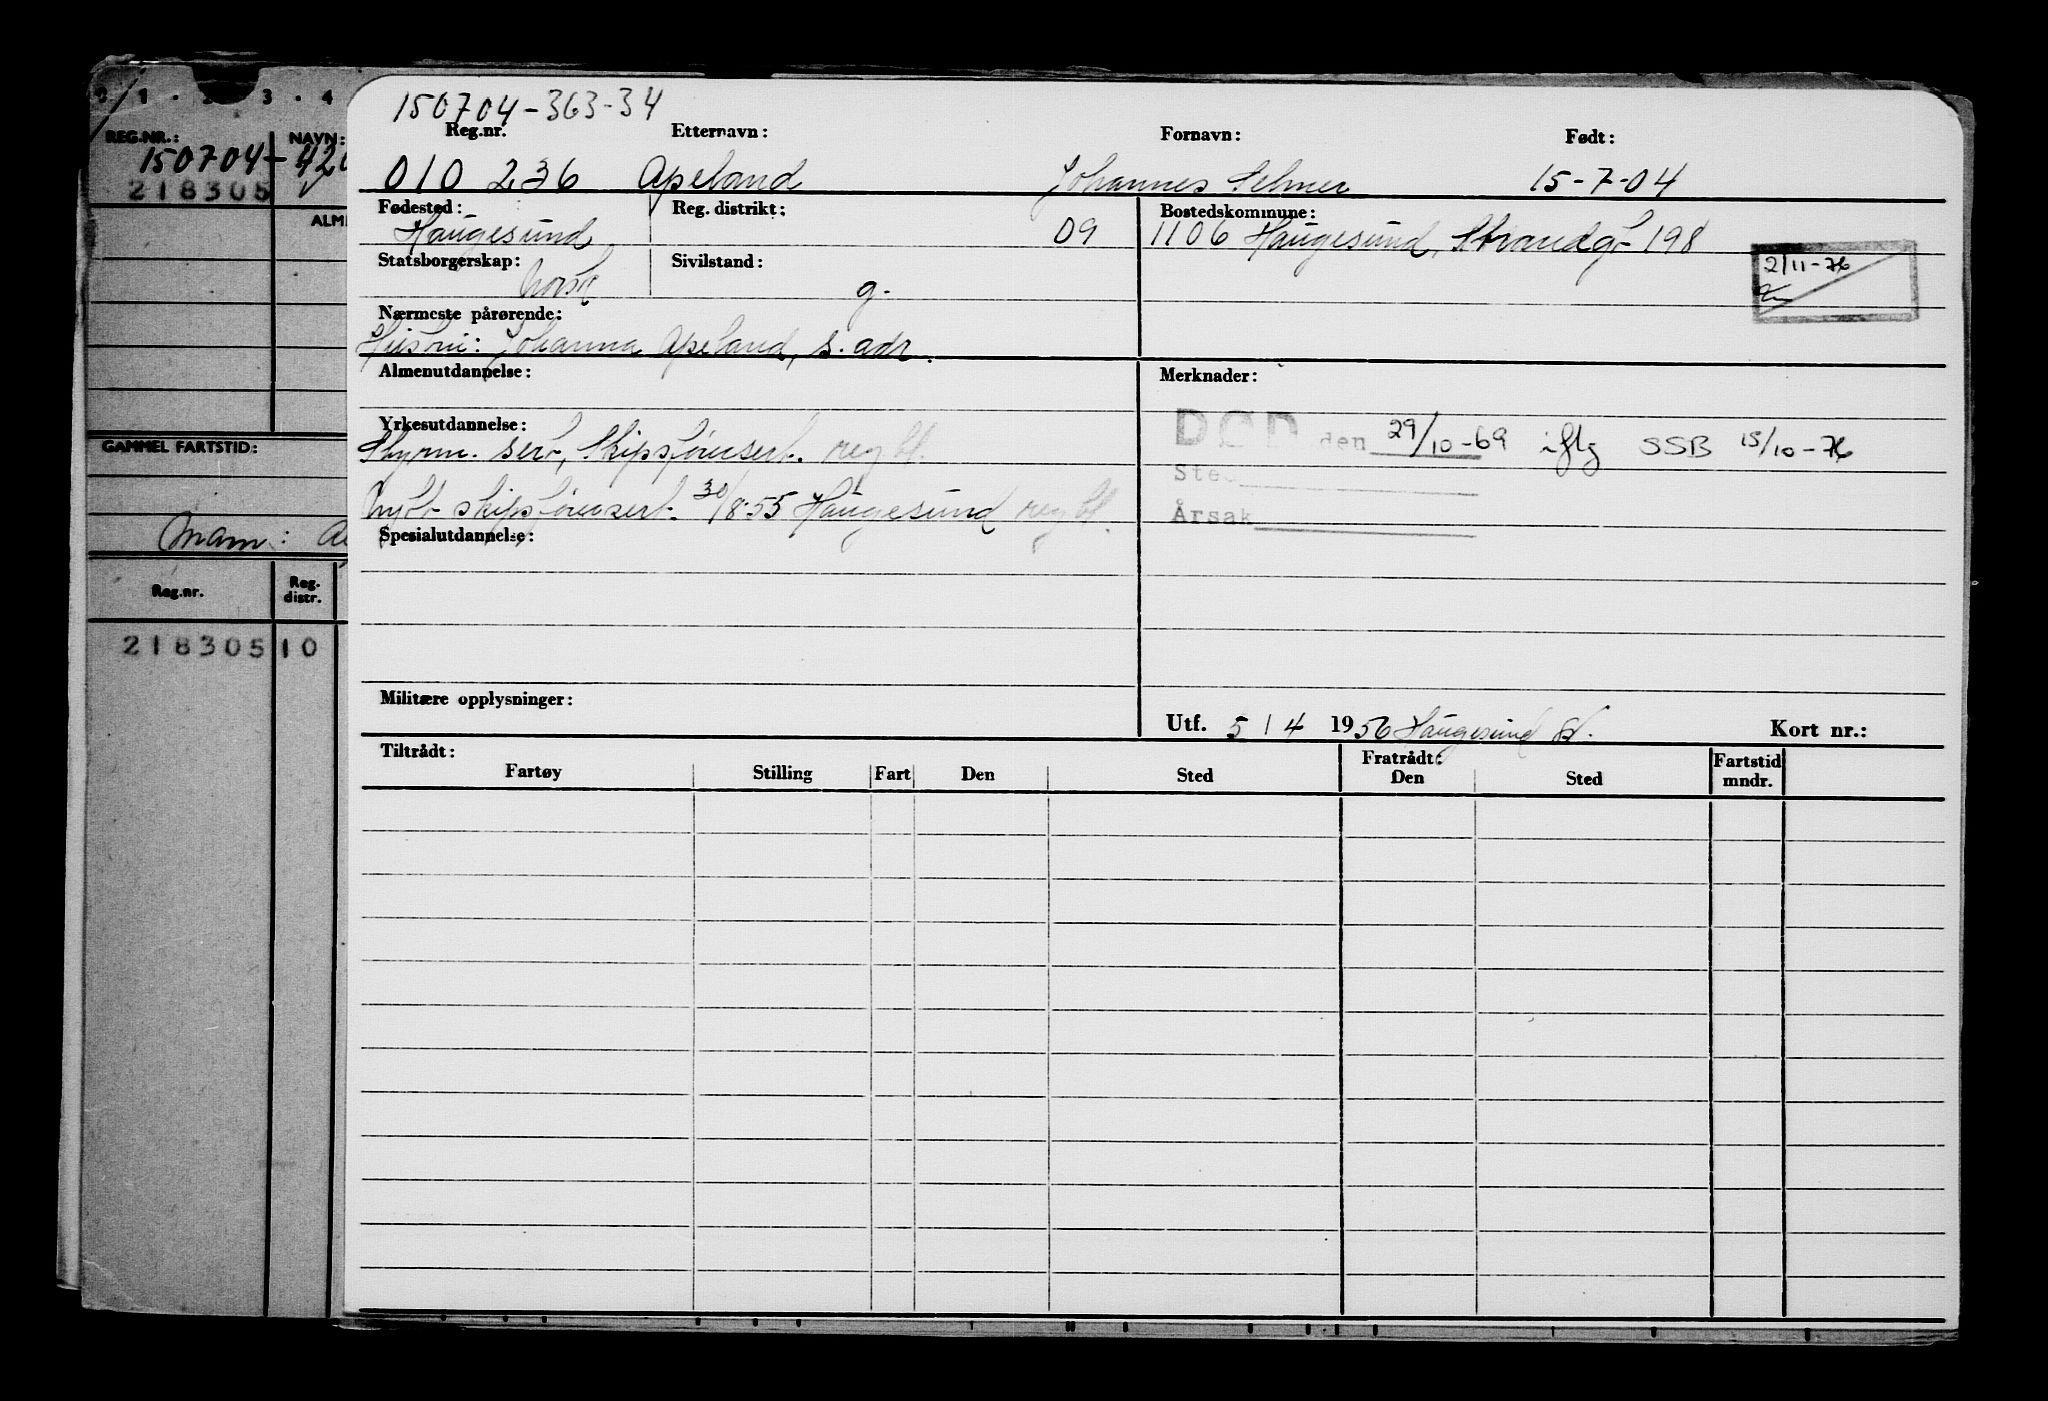 0 1 . 2 3 . 4
REG.NR.: NAVN:
150704-
218305
GAMMEL FARTSTID:
Mam:
Reg.nr. Reg. distr.
218305 10
150704-363-34
Reg.nr. Etternavn: Fornavn: Født:
010 236 Apeland Johannes Selmer 15-7-04
Fødested: Reg. distrikt: Bostedskommune:
Haugesund 09 1106 Haugesund, Strandgt 198
Statsborgerskap: Sivilstand:
norsk g.
2/11-76
Nærmeste pårørende:
Hustru: Johanna Apeland, s. adr.
Almenutdannelse: Merknader:
Yrkesutdannelse:
DØD den 29/10-69 iflg SSB 15/10-76
Styrm. sert, Skipsførersert. reg bl.
Sted
Nytt skipsførersert. 30/8-55 Haugesund reg bl.
Årsak
Spesialutdannelse:
Militære opplysninger:
Utf. 5/4 1956 Haugesund Kort nr.:
Tiltrådt: Fratrådt:
Fartøy Stilling Fart Den Sted Den Sted Fartstid mndr.